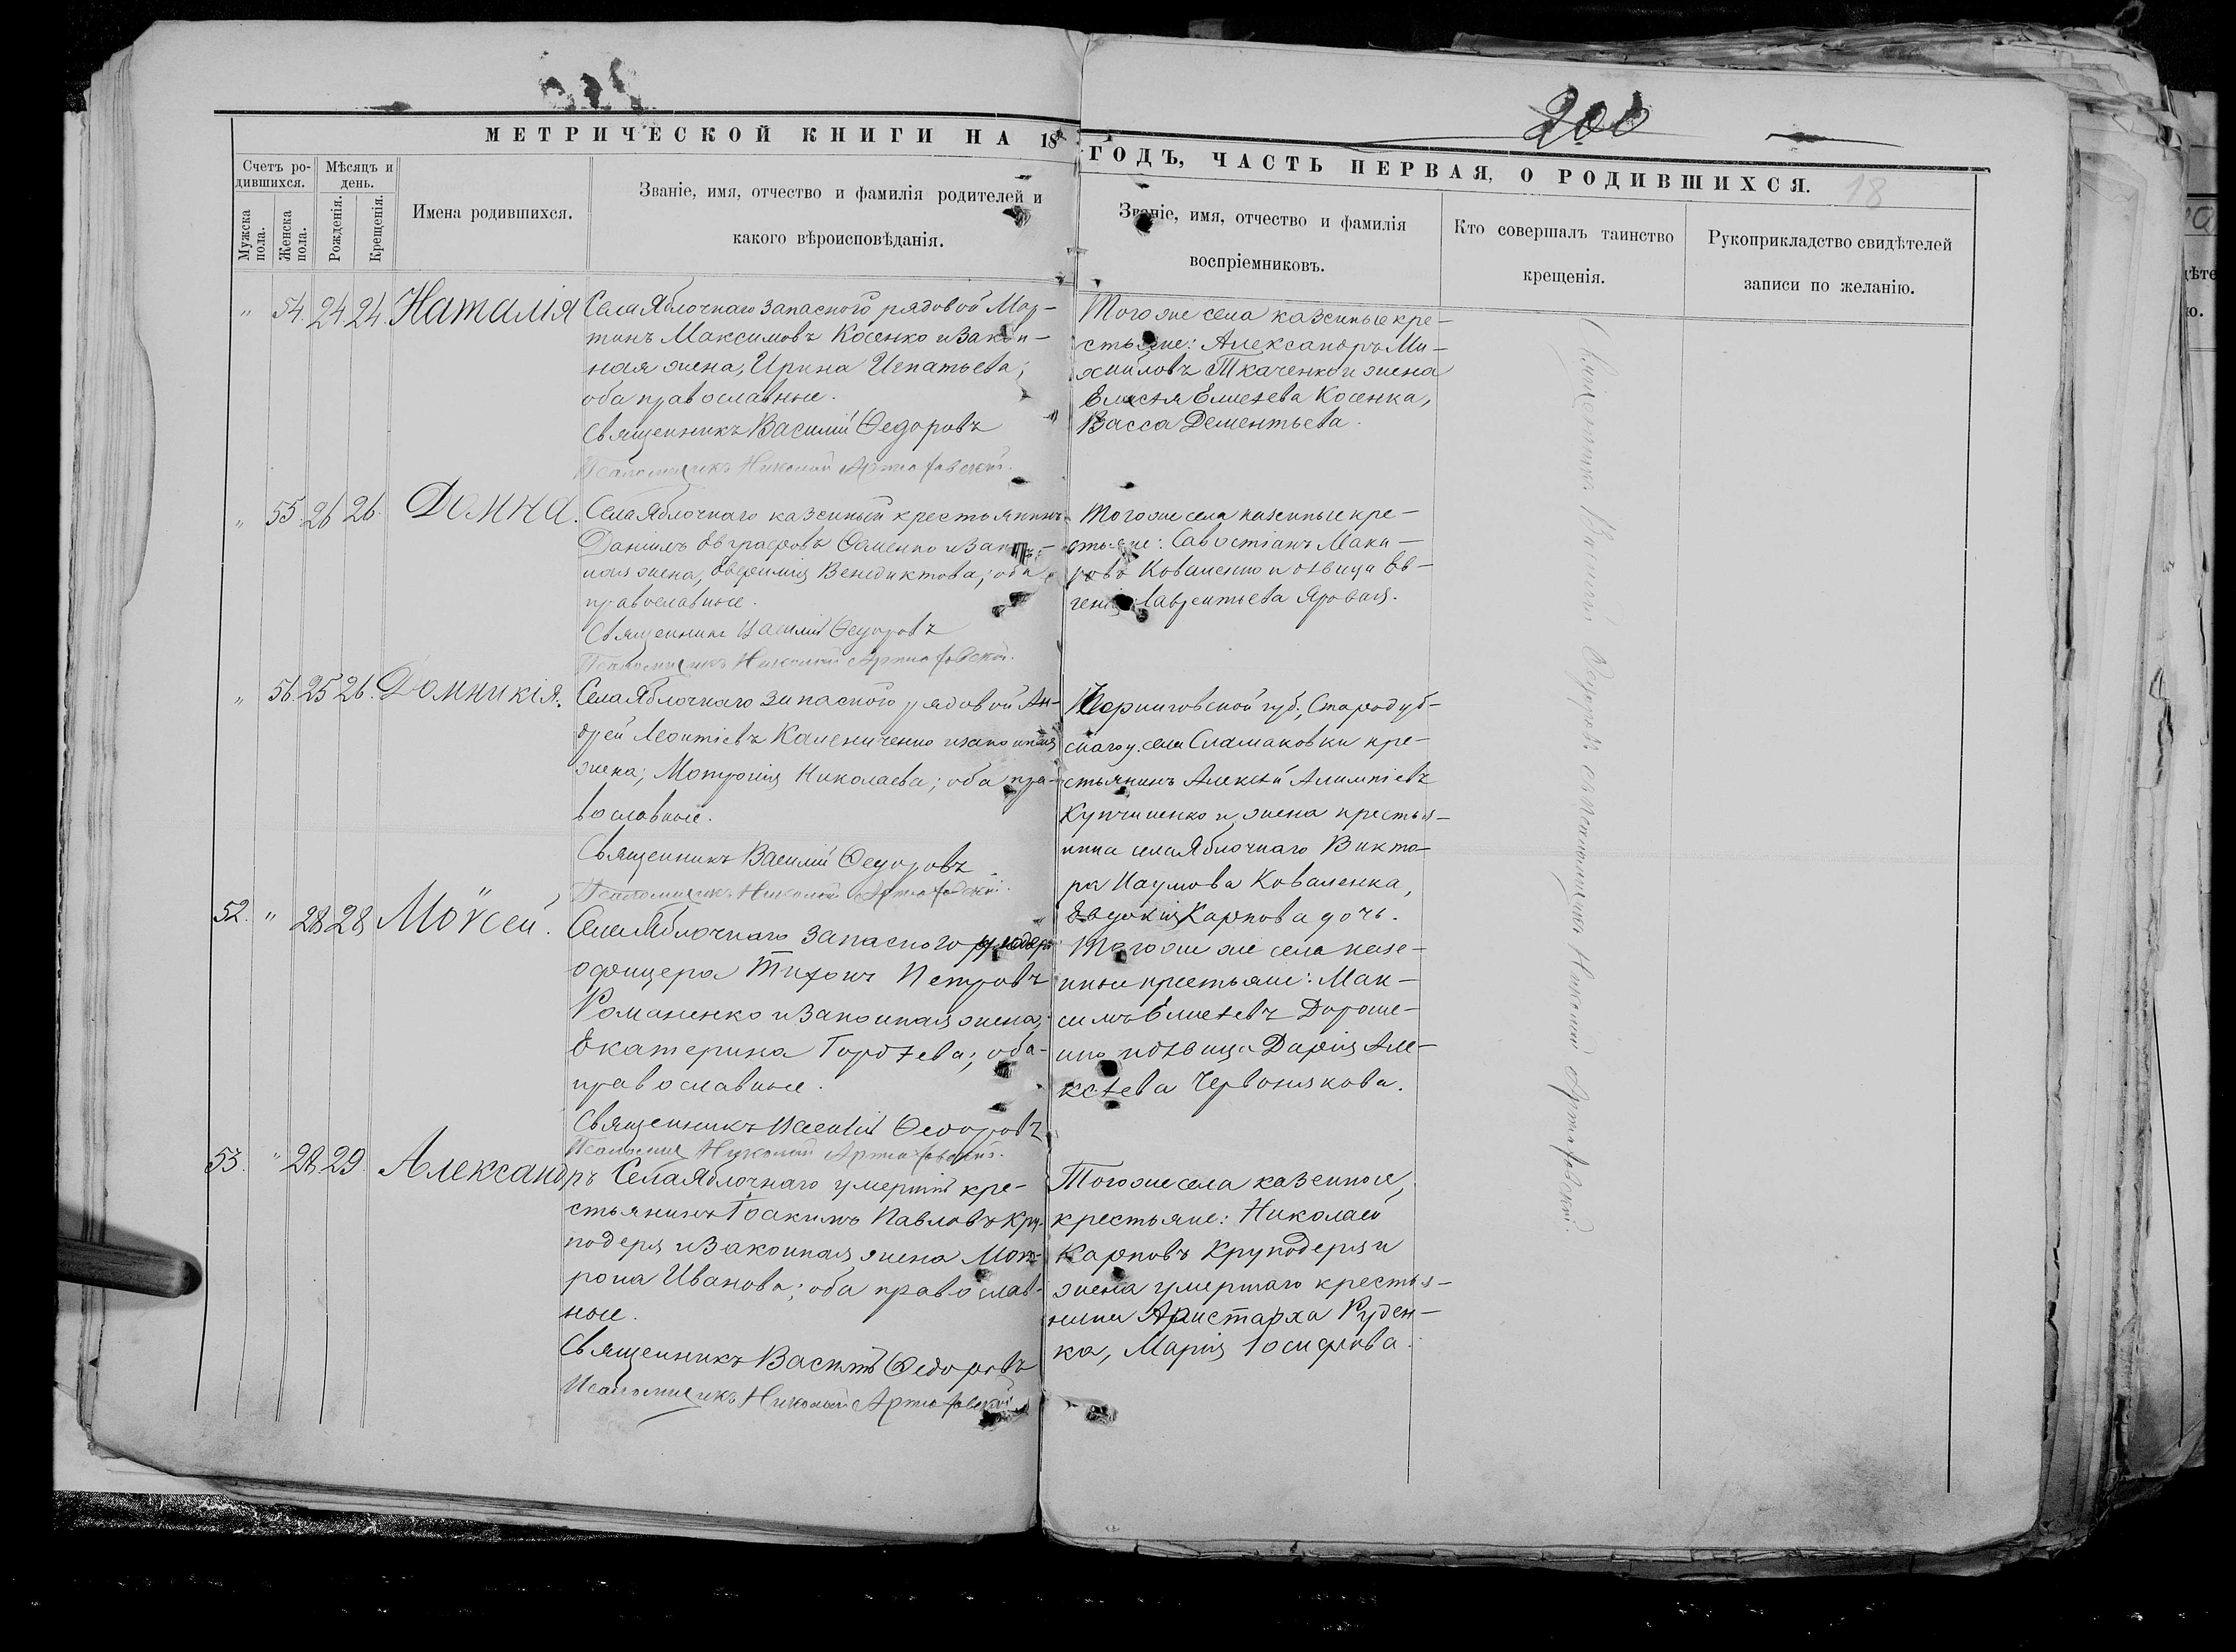 200
18
МЕТРИЧЕСКОЙ КНИГИ НА 18
ГОДЪ, ЧАСТЬ ПЕРВАЯ, О РОДИВШИХСЯ.
Счетъ ро-
дившихся.
Мѣсяцъ и
день.
Мужска
пола.
Женска
пола.
Рожденія.
Крещенія.
Имена родившихся.
Званіе, имя, отчество и фамилія родителей и
какого вѣроисповѣданія.
Званіе, имя, отчество и фамилія
воспріемниковъ.
Кто совершалъ таинство
крещенія.
Рукоприкладство свидѣтелей
записи по желанію.
" 54. 24 24 Наталія
Села Яблочнаго запасного рядовой Мар-
тинъ Максимовъ Косенко и закон-
ная жена, Ирина Игнатьева;
оба православные.
Священникъ Василій Ѳедоровъ
Псаломщикъ Николай
Того же села казенные кре-
стьяне: Александръ Ми-
хайловъ Ткаченко и жена
Елисѣя Елисѣева Косенка,
Васса Дементьева.
" 55. 26 26. Домна.
Села Яблочнаго казенный крестьянинъ
Даніилъ Евграфовъ и закон-
ная жена, Евфимія Венедиктова; оба
православные.
Священникъ Василій Ѳедоровъ
Псаломщикъ Николай
Того же села казенные кре-
стьяне: Савостіанъ Мака-
ровъ Коваленко и дѣвица Ев-
генія Лаврентьева Яровая.
" 56. 25 26. Домникія.
Села Яблочнаго запасного рядовой Ан-
дрей Леонтіевъ Калениченко и законная
жена; Матрона Николаева; оба пра-
вославные.
Священникъ Василій Ѳедоровъ
Псаломщикъ Николай
Черниговской губ., Стародуб-
скаго у. села кре-
стьянинъ Алексѣй Алимпіевъ
и жена крестья-
нина села Яблочнаго Викто-
ра Наумова Коваленка,
Евдокія Карпова дочь.
52. " 28 28 Моѵсей.
Села Яблочнаго запасного унтеръ
офицера Тихонъ Петровъ
Романенко и законная жена,
Екатерина Гордѣева; оба
православные.
Священникъ Василій Ѳедоровъ
Псаломщ Николай
Того же села казе-
нные крестьяне: Мак-
симъ Елисѣевъ Дороше-
нко и дѣвица Дарія Але-
ксѣева Червонякова.
53. " 28 29. Александръ
Села Яблочнаго умершій кре-
стьянинъ Іоакимъ Павловъ Кру-
подеря и законная жена Мат-
рона Иванова; оба православ-
ные.
Священникъ Василій Ѳедоровъ
Псаломщикъ Николай
Того же села казенные
крестьяне: Николай
Карповъ Круподеря и
жена умершаго крестья-
нина Аристарха Руден-
ка, Марія Іосифова.
Священникъ Василій Ѳедоровъ съ псаломщикомъ Николаемъ